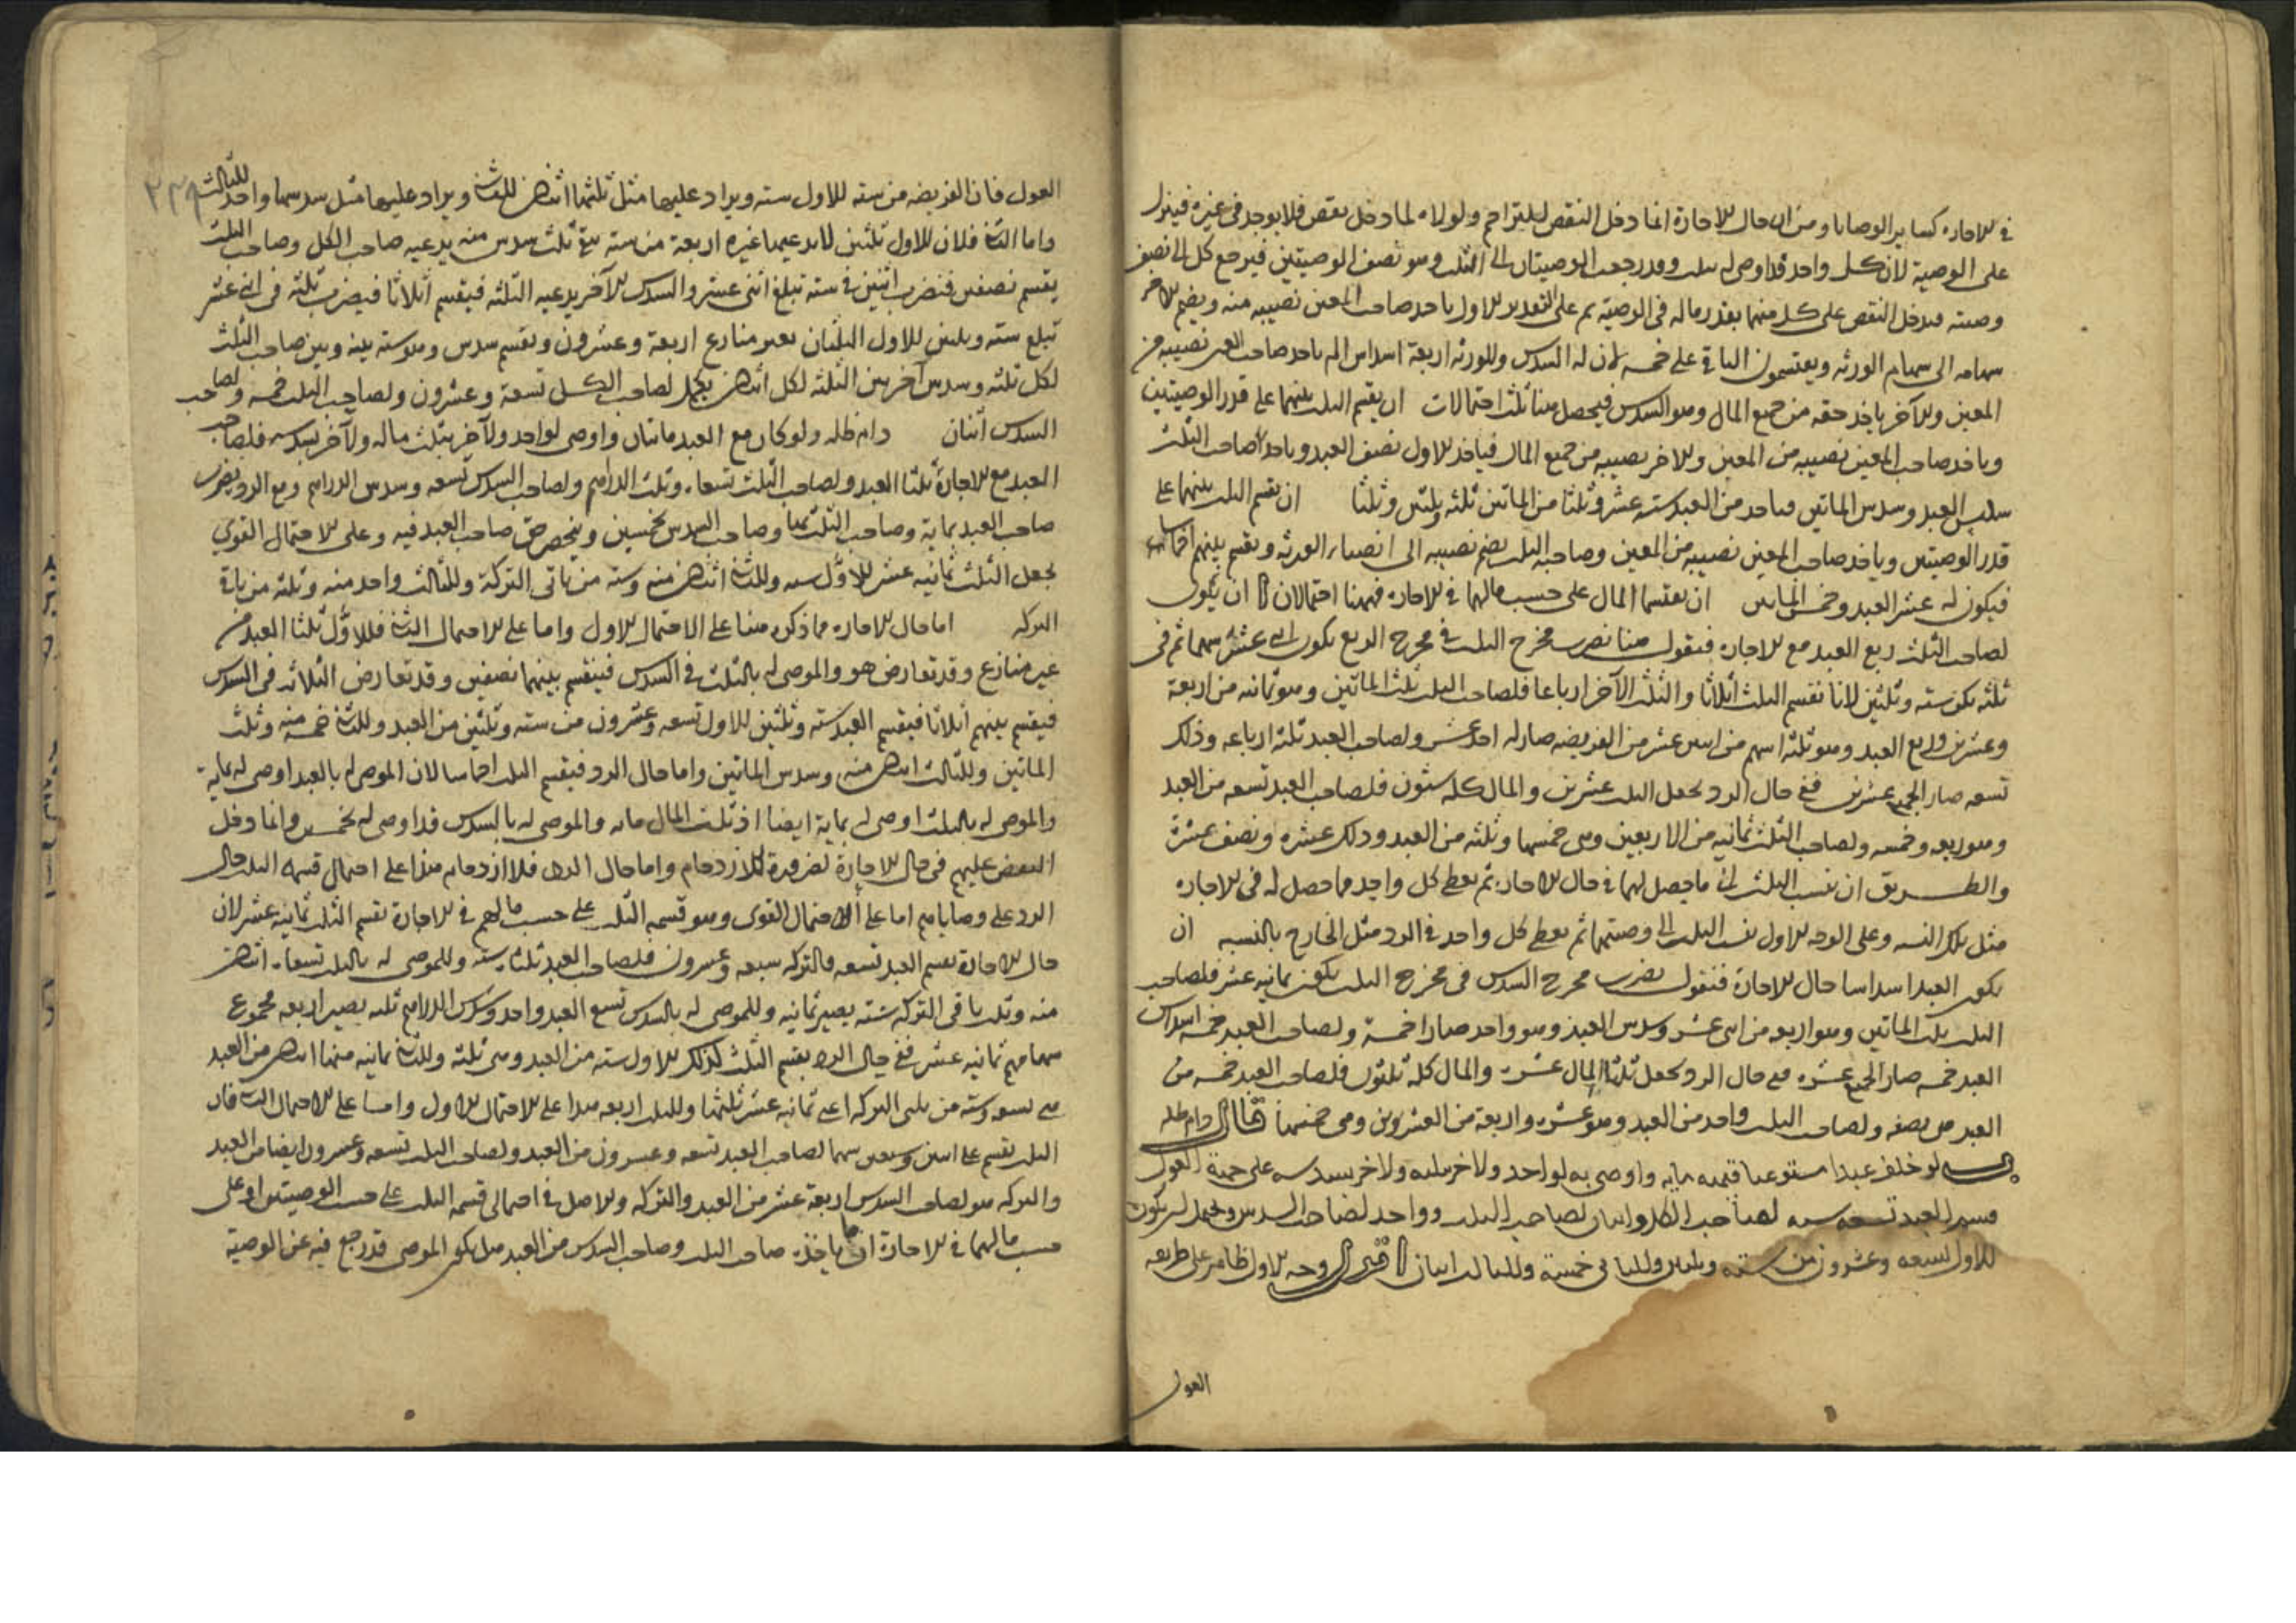 في الاجازة كساير الوصايا ومن ان حال الاجازة انما دخل النقص ليتزاحم ولولاه لما دخل نقص فلا يوجد في غيره فينزل
على الوصية لان كل واحد قد اوصى له بثلث وقد رجعت الوصيتان الى الثلث وهو نصف الوصيتين فيرجع كل الى نصف
وصيته فيدخل النقص على كل منهما بقدر ماله في الوصية ثم على التقدير الاول ياخذ صاحب المعين نصيبه منه ويضم الاخر
سهامه الى سهام الورثه ويقتسمون الباقي على خمسه لان له السدس وللورثه اربعة اسداس ياخذ صاحب المعين نصيبه من
المعين والآخر ياخذ حقه من جميع المال وهو السدس فيحصل هنا ثلث احتمالات ان يقسم الثلث بينهما على قدر الوصيتين
وياخذ صاحب المعين نصيبه من المعين والاخر نصيبه من جميع المال فياخذ الاول نصف العبد وياخذ صاحب الثلث
سدس العبد وسدس الماتين فياخذ من العبد سته عشر وثلثا من الماتين ثلثه وثلثين وثلثا ان يقسم الثلث بينهما على
قدر الوصيتين وياخذ صاحب المعين نصيبه من المعين وصاحب الثلث يضم نصيبه الى انصباء الورثه ويقسم بينهم اخماسا
فيكون له عشر العبد وخمس الماتين ان يقتسما المال على حسب مالهما في الاجازه فههنا احتمالان ا ان يكون
لصاحب الثلث ربع العبد مع الاجازه فنقول هنا نضرب مخرج الثلث في مخرج الربع يكون اثنى عشر سهما ثم في
ثلثه يكون سته وثلثين لانا نقسم الثلث اثلاثا والثلث الآخر ارباعا فلصاحب الثلث ثلث الماتين وهو ثمانيه من اربعة
وعشرين وربع العبد وهو ثلثه اسهم من اثنى عشر من الفريضه صار له احد عشر ولصاحب العبد ثلثة ارباعه وذلك
تسعه صار الجميع عشرين ففي حال الرد نجعل الثلث عشرين والمال كله ستون فلصاحب العبد تسعه من العبد
وهو ربعه وخمسه ولصاحب الثلث ثمانيه من الاربعين وهي خمسها وثلثه من العبد وذلك عشره ونصف عشرة
والطريق ان ننسب الثلث الى ما حصل لهما في حال الاجازه ثم نعطي كل واحد مما حصل له في الاجازه
مثل تلك النسبه وعلى الوجه الاول ننسب الثلث الى وصيتهما ثم نعطي كل واحد في الرد مثل الخارج بالنسبه ان
يكون العبد اسداسا حال الاجازة فنقول نضرب مخرج السدس في مخرج الثلث يكون ثمانيه عشر فلصاحب
الثلث ثلث الماتين وهو اربعه من اثنى عشر وسدس العبد وهو واحد صار خمسة ولصاحب العبد خمسة اسداس
العبد خمسه صار الجميع عشره ففي حال الرد نجعل ثلث المال عشره والمال كله ثلثون فلصاحب العبد خمسه من
العبد هي نصفه ولصاحب الثلث واحد من العبد وهو عشره واربعة من العشرين وهي خمسها قال دام ظله
لو خلف عبدا مستوعبا قيمته مايه واوصى به لواحد ولاخر بثلثه ولاخر بسدسه على جهة العول
قسم العبد تسعه سته لصاحب الكل واثنان لصاحب الثلث وواحد لصاحب السدس ويحتمل ان يكون
للاول تسعه وعشرون من سته وثلثين وللثاني خمسة وللثالث اثنان اقول وجه الاول ظاهر على طريقه
العول
العول فان الفريضه من سته للاول سته ويزاد عليها مثل ثلثها اثنان للثاني ويزاد عليها مثل سدسها واحد للثالث
واما الثاني فلان للاول ثلثين لا يدعيها غيره اربعة من سته يبقى ثلث سدس منه يدعيه صاحب الكل وصاحب الثلث
يقسم نصفين فنضرب اثنين في سته تبلغ اثنى عشر والسدس الآخر يدعيه الثلثه فيقسم اثلاثا فيضرب ثلثه في اثنى عشر
تبلغ سته وثلثين للاول الثلثان بغير منازع اربعة وعشرون ويقسم سدس وهو سته بينه وبين صاحب الثلث
لكل ثلثه وسدس آخر بين الثلثه لكل اثنان يكمل لصاحب الكل تسعة وعشرون ولصاحب الثلث خمسه ولصاحب
السدس اثنان دام ظله ولو كان مع العبد ماتان واوصى لواحد ولآخر بثلث ماله ولآخر بسدسه فلصاحب
العبد مع الاجازة ثلثا العبد ولصاحب الثلث تسعاه وثلث الدراهم ولصاحب السدس تسعه وسدس الدراهم ومع الرد يضرب
صاحب العبد بماية وصاحب الثلث بماية وصاحب السدس بخمسين وينحصر حق صاحب العبد فيه وعلى الاحتمال القوي
يجعل الثلث ثمانيه عشر للاول سته وللثاني اثنان منه وسته من باقي التركة وللثالث واحد منه وثلثه من باقي
التركه اما حال الاجازه فما ذكره هنا على الاحتمال الاول واما على الاحتمال الثاني فللاول ثلثا العبد من
غير منازع وقد تعارض هو والموصى له بالثلث في السدس فينقسم بينهما نصفين وقد تعارض الثلاثه في السدس
فيقسم بينهم اثلاثا فيقسم العبد سته وثلثين للاول تسعه وعشرون من سته وثلثين من العبد وللثاني خمسه منه وثلث
الماتين وللثالث اثنان منه وسدس الماتين واما حال الرد فيقسم الثلث اخماسا لان الموصى له بالعبد اوصى له بمايه
والموصى له بالثلث اوصى له بماية ايضا اذ ثلث المال مايه والموصى له بالسدس قد اوصى له بخمسين وانما دخل
النقص عليهم في حال الاجازة لضرورة الازدحام واما حال الرد فلا ازدحام هذا على احتمال قسمه الثلث حال
الرد على وصاياهم اما على الاحتمال القوى وهو قسمه الثلث على حسب مالهم في الاجازة يقسم الثلث ثمانيه عشر لان
حال الاجازة يقسم العبد تسعه فالتركه سبعه وعشرون فلصاحب العبد ثلثاه سته وللموصى له بالثلث تسعاه اثنان
منه وثلث باقى التركه سته يصير ثمانيه وللموصى له بالسدس تسع العبد واحد وسدس الدراهم ثلثه يصير اربعه مجموع
سهامهم ثمانيه عشر ففي حال الرد يقسم الثلث كذلك للاول سته من العبد وهي ثلثه وللثاني ثمانيه منها اثنان من العبد
هي تسعه وسته من ثلثى التركه اعني ثمانيه عشر ثلثها وللثالث اربعه هذا على الاحتمال الاول واما على الاحتمال الثاني فان
الثلث يقسم على اثنين وسبعين سهما لصاحب العبد تسعه وعشرون من العبد ولصاحب الثلث تسعه وعشرون ايضا من العبد
والتركه ولصاحب السدس اربعة عشر من العبد والتركه والاصل في احتمالى قسمه الثلث على حسب الوصيتين او على
حسب مالهما في الاجازة ان ما ياخذه صاحب الثلث وصاحب السدس من العبد هل يكون الموصى قد رجع فيه عن الوصية